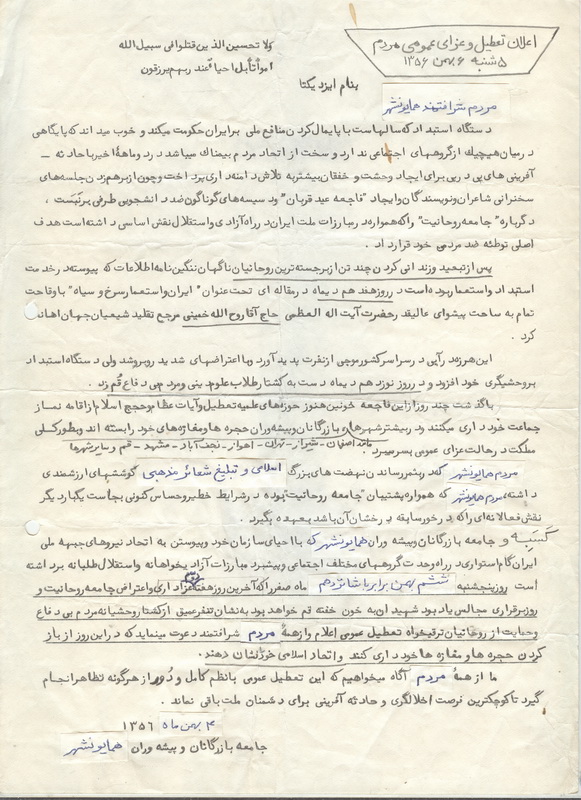 اعلان تعطیل و عزای عمومی مردم
۵شنبه ۶ بهمن ۱۳۵۶
ولا تحسبن الذین قتلوا فی سبیل الله
امواتاً بل احیاءٌ عند ربهم یرزقون
بنام ایزد یکتا
مردم شرافتمند همایونشهر
دستگاه استبداد که سالهاست با پایمال کردن منافع ملی بر ایران حکومت میکند و خوب میداند که پایگاهی
در میان هیچیک از گروههای اجتماعی ندارد و سخت از اتحاد مردم بیمناک میباشد در دو ماههٔ اخیر با حادثه –
آفرینی های پی در پی برای ایجاد وحشت و خفقان بیشتر به تلاش دامنه داری پرداخت و چون از برهم زدن جلسه‌های
سخنرانی شاعران و نویسندگان و ایجاد "فاجعه عید قربان" و دسیسه‌های گوناگون ضد دانشجویی طرفی بر نبست ،
دگرباره "جامعه روحانیت" را که همواره در مبارزات ملت ایران در راه آزادی و استقلال نقش اساسی داشته است هدف
اصلی توطئه ضد مردمی خود قرار داد .
پس از تبعید و زندانی کردن چند تن از برجسته ترین روحانیان ناگهان ننگین نامه اطلاعات که پیوسته در خدمت
استبداد و استعمار بوده است در روز هفدهم دیماه در مقاله ای تحت عنوان "ایران و استعمار سرخ و سیاه" با وقاحت
تمام به ساحت پیشوای عالیقدر حضرت آیت اله العظمی حاج آقا روح الله خمینی مرجع تقلید شیعیان جهان اهانت
کرد .
این هرزه درآیی در سراسر کشور موجی از نفرت پدید آورد و با اعتراضهای شدید روبرو شد ولی دستگاه استبداد
بر وحشیگری خود افزود و در روز نوزدهم دیماه دست به کشتار طلاب علوم دینی و مردم بی دفاع قم زد .
با گذشت چند روز از این فاجعه خونین هنوز حوزه‌های علمیه تعطیل و آیات عظام و حجج اسلام از اقامه نماز
جماعت خود داری میکنند و در بیشتر شهرها بازرگانان و پیشه وران حجره ها و مغازه های خود را بسته اند و بطور کلی
مانند اصفهان - شیراز - تهران - اهواز - نجف آباد - مشهد - قم و سایر شهرها
مملکت در حالت عزای عمومی بسر میبرد .
مردم همایونشهر که در بثمر رساندن نهضت های بزرگ اسلامی و تبلیغ شعائر مذهبی کوششهای ارزشمندی
داشته مردم همایونشهر که همواره پشتیبان "جامعه روحانیت" بوده در شرایط خطیر و حساس کنونی بجاست یکبار دیگر
نقش فعالانه ای را که در خور سابقه درخشان آن باشد بعهده بگیرد .
کسبه و جامعه بازرگانان و پیشه وران همایونشهر که با احیای سازمان خود و پیوستن به اتحاد نیروهای جبهه ملی
ایران گام استواری در راه وحدت گروههای مختلف اجتماعی و پیشبرد مبارزات آزادیخواهانه و استقلال طلبانه برداشته
است روز پنجشنبه ششم بهمن برابر با شانزدهم ماه صفر را که آخرین روز هفته عزاداری و اعتراض جامعه روحانیت و
روز برقراری مجالس یادبود شهیدان به خون خفته قم خواهد بود به نشان تنفر عمیق از کشتار وحشیانه مردم بی دفاع
و حمایت از روحانیان ترقیخواه تعطیل عمومی اعلام و از همهٔ مردم شرافتمند دعوت مینماید که در این روز از باز
کردن حجره ها و مغازه ها خود داری کنند و اتحاد اسلامی خود را نشان دهند .
ما از همهٔ مردم آگاه میخواهیم که این تعطیل عمومی با نظم کامل و دور از هرگونه تظاهر انجام
گیرد تا کوچکترین فرصت اخلالگری و حادثه آفرینی برای دشمنان ملت باقی نماند .
۴ بهمن ماه ۱۳۵۶
جامعه بازرگانان و پیشه وران همایونشهر